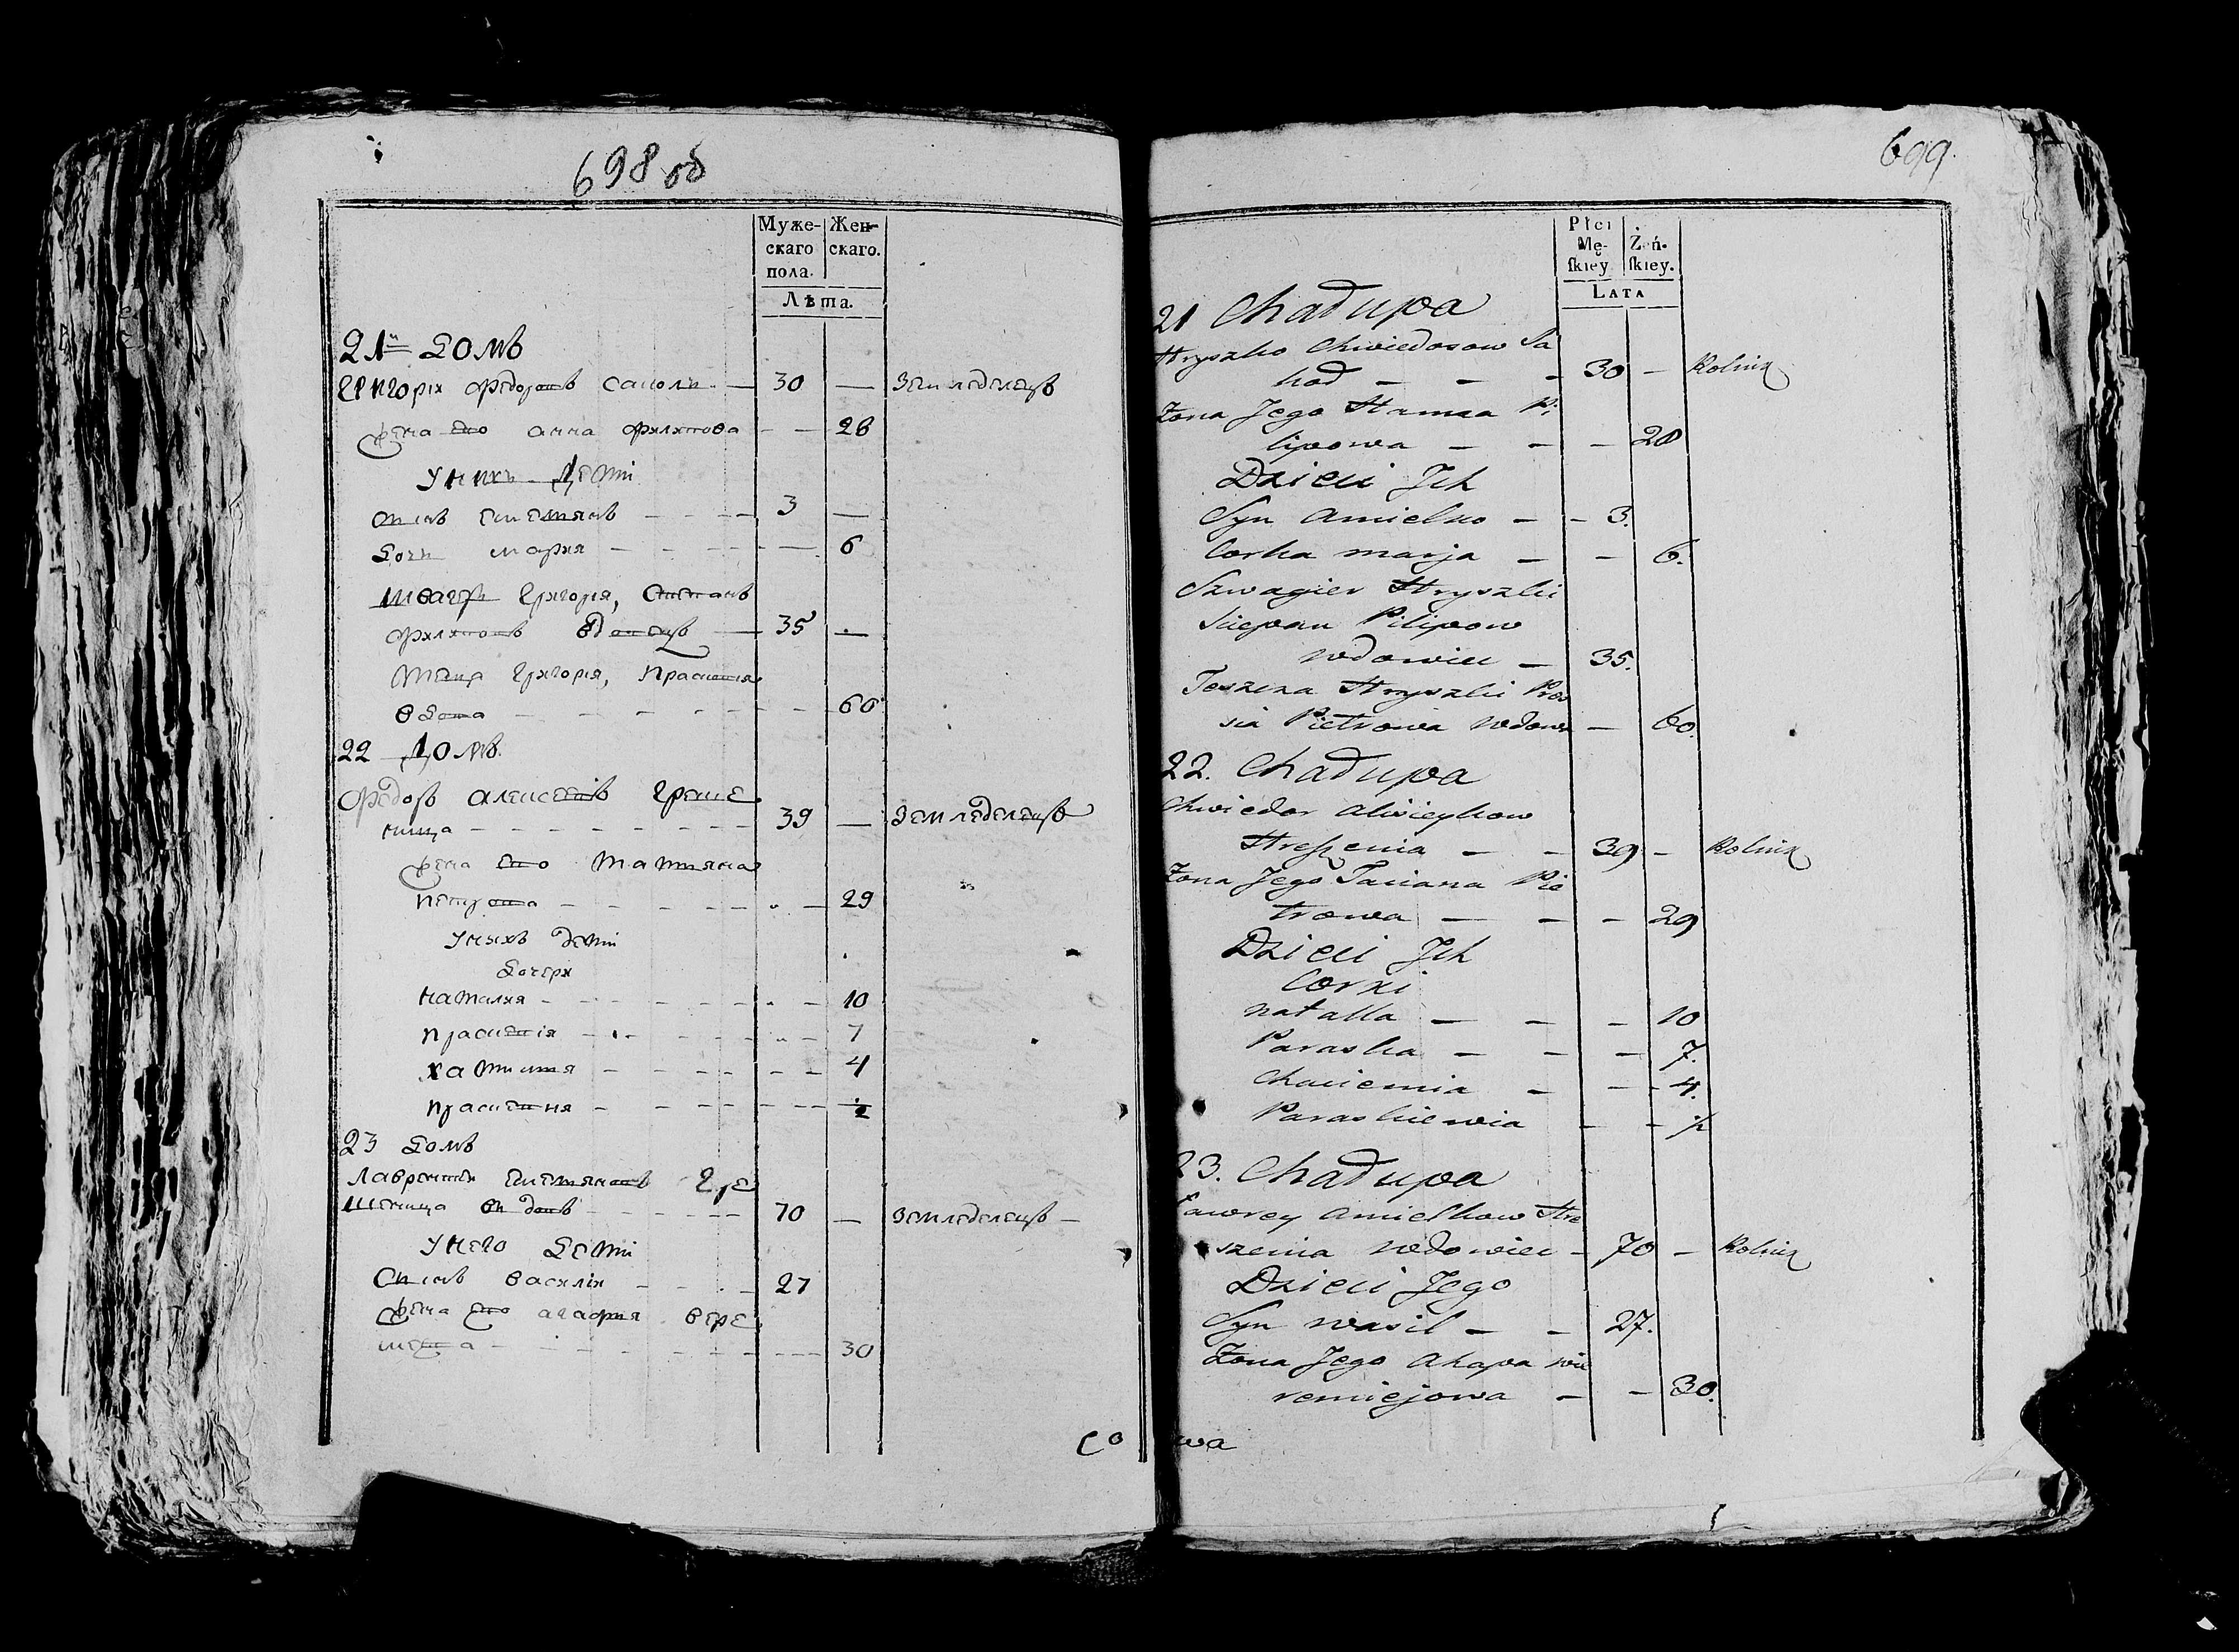 698 об
Муже-
скаго
пола.
Жен-
скаго.
Лѣта.
21й Домъ
Григорій Федоровъ Саполь — 30 — Земледелецъ
жена его Анна Филипова — — 28
У нихъ Дети
Сынъ Емельянъ - - - - 3 —
Дочь Мария — - - - - — 6
Швагеръ Григорія, Степанъ
Филиповъ вдовецъ — 35 —
Теща Григорія, Прасковья
вдова - - - - - - 60
22 Домъ
Федоръ Алексеевъ Греше
ница - - - - - - - - 39 — Земледелецъ
жена его Татьяна
Петрова - - - - - - - — 29
У нихъ дети
Дочери
Наталия - - - - - - - — 10
Прасковія - - - - - - - — 7
- - - - - - - - 4
- - - - - - - ½
23 Домъ
Лаврентий Емельяновъ Гре
шеница вдовъ - - - - - 70 — Земледелецъ —
У него Дети
Сынъ Василій - - - - 27
Жена его Агафия Вере
меева - - - - - - - — 30
со
699.
Płci
Mę-
ſkiey
Żeń-
ſkiey.
LATA
21 Chałupa
Hryszko Chwiedosow Sa
hoł — — — 30 — Rolnik
Żona Jego Hanna Pi
lipowa — — — 28
Dzieci Jch
Syn Amielko — — 3.
Corka Marja — — 6.
Szwagier Hryszki
Sciepan Pilipow
wdowiec — 35.
Teszcza Hryszki Pros
sia Pietrowa wdowa — 60.
22. Chałupa
Chwiedor Alisieykow
Hreszenia — — 39 — Rolnik
Żona Jego Taciana Pie
trowa — — — 29
Dzieci Jch
Corki
Natalla — — — 10
Paraska — — — 7.
Chaciemia — — — 4.
Paraskiewia — — ½
23. Chałupa
Ławrey Amielkow Hre
szenia wdowiec — 70 — Rolnik
Dzieci Jego
Syn Wasil — — 27.
Żona Jego Ahapa Wie
remiejowa — — 30.
wa